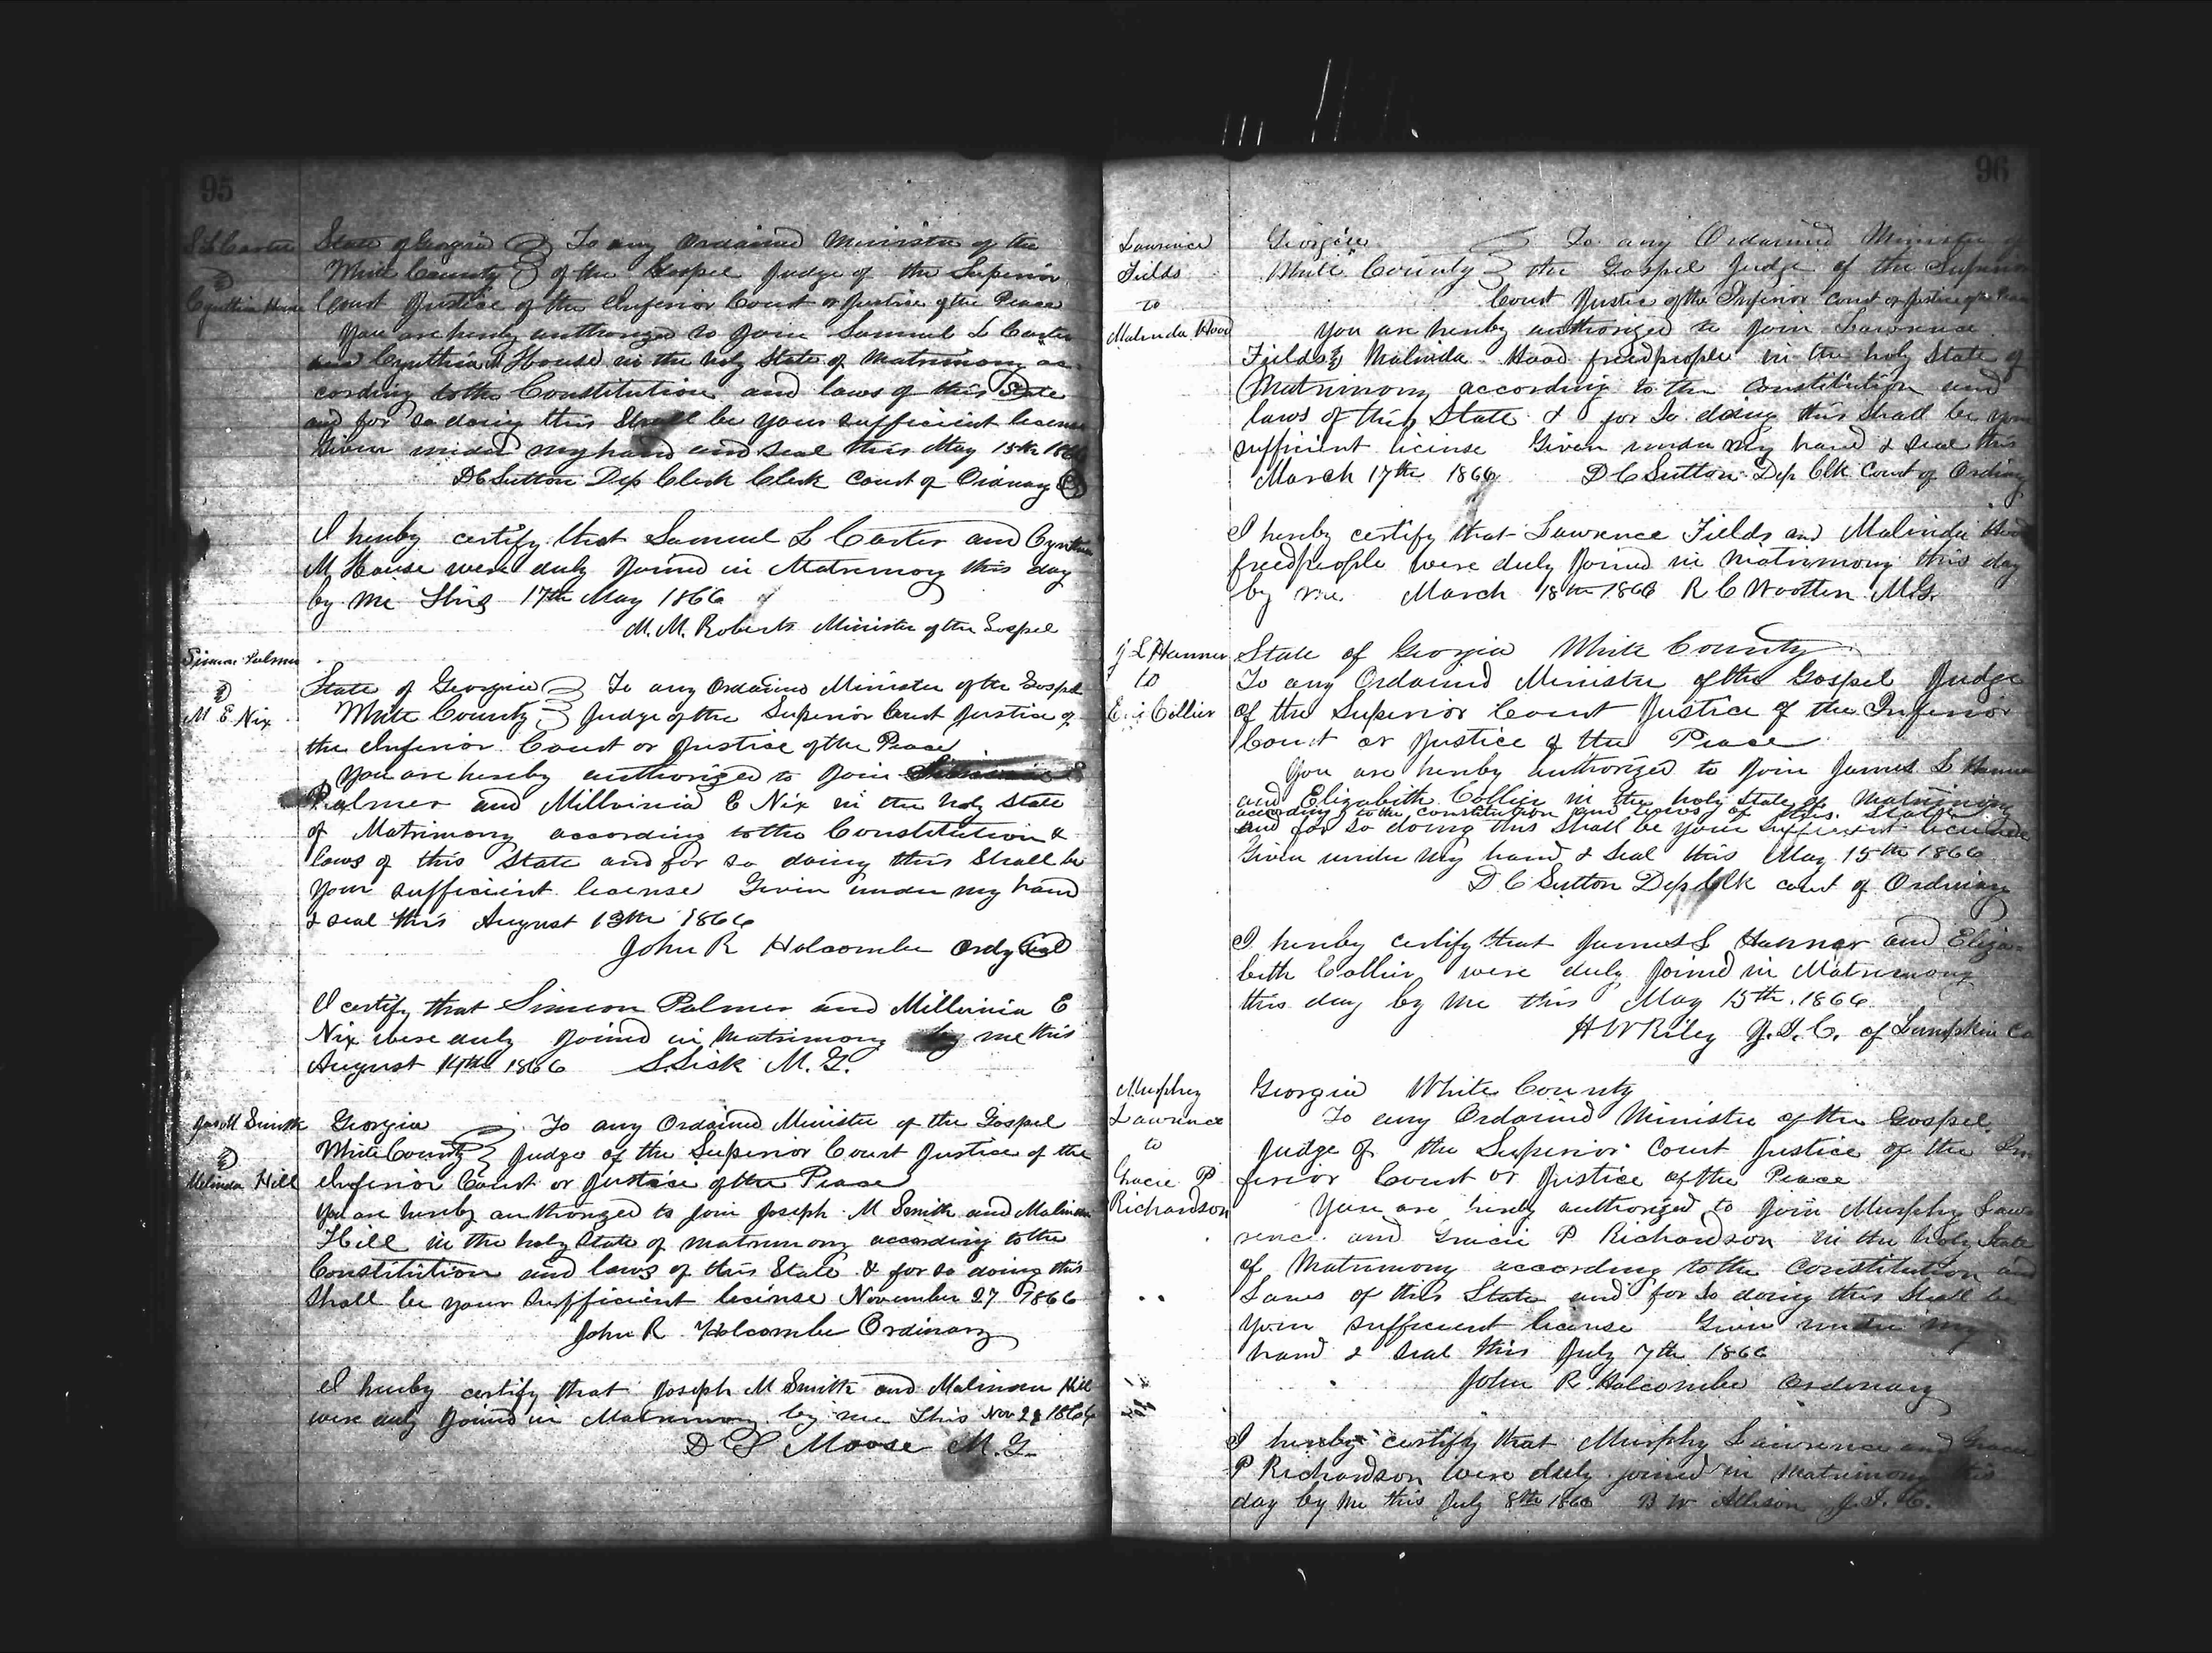 95
S L Carter
&
Cynthia House
State of Georgia } To any Ordained Minister of the
White County } of the Gospel Judge of the Superior
Court Justice of the Inferior Court or Justice of the Peace
You are hereby authorized to Join Samuel L Carter
and Cynthia M House in the holy State of Matrimony ac-
cording to the Constitution and laws of this State
and for so doing this Shall be your sufficient license
Given under my hand and seal this May 15th 1866
D C Sutton Dep Clerk Clerk Court of Ordinary
I hereby certify that Samuel L Carter and Cynthia
M House were duly Joined in Matrimony this day
by me this 17th May 1866
M. M. Roberts Minister of the Gospel
Simeon Palmer
&
M E Nix
State of Georgia } To any Ordained Minister of the Gospel
White County } Judge of the Superior Court Justice of
the Inferior Court or Justice of the Peace
You are hereby authorized to Join
Palmer and Millvinia E Nix in the holy State
of Matrimony according to the Constitution &
laws of this State and for so doing this Shall be
your sufficient license Given under my hand
& seal this August 13th 1866
John R Holcombe Ordy Seal
I certify that Simeon Palmer and Millvinia E
Nix were duly Joined in Matrimony by me this
August 14th 1866 S. Sisk M. G.
Jos M Smith
&
Melinda Hill
Georgia } To any Ordained Minister of the Gospel
White County } Judge of the Superior Court Justice of the
Inferior Court or Justice of the Peace
You are hereby authorized to Join Joseph M Smith and
Hill in the holy State of matrimony according to the
Constitution and laws of this State & for so doing this
Shall be your sufficient license November 27 1866
John R Holcombe Ordinary
I hereby certify that Joseph M Smith and Hill
were duly Joined in Matrimony by me this Nov 1866
D Moose M. G.
96
Lawrence
Fields
to
Malinda Hood
Georgia } To any Ordained Minister of
White County } the Gospel Judge of the Superior
Court Justice of the Inferior Court or Justice of the Peace
You are hereby authorized to Join Lawrence
Fields & Malinda Hood freedpeople in the holy State of
Matrimony according to the Constitution and
laws of this State & for so doing this shall be your
sufficient license Given under my hand & seal this
March 17th 1866 D C Sutton Dep Clk Court of Ordinary
I hereby certify that Lawrence Fields and Malinda Hood
freedpeople were duly Joined in matrimony this day
by me March 18th 1866 R C Wootten M.G.
J L Hanner
to
Collier
State of Georgia White County
To any Ordained Minister of the Gospel Judge
of the Superior Court Justice of the Inferior
Court or Justice of the Peace
You are hereby authorized to Join James L Hanner
and Elizabeth Collier in the holy State of Matrimony
according to the constitution and laws of this State
and for so doing this Shall be your sufficient license
Given under my hand & Seal this May 15th 1866
D C Sutton Dep Clk court of Ordinary
I hereby certify that James L Hanner and Eliza-
beth Collier were duly Joined in Matrimony
this day by me this May 15th 1866
H W Riley J. I. C. of Lumpkin Co
Murphy
Lawrence
to
Gracie P
Richardson
Georgia White County
To any Ordained Minister of the Gospel
Judge of the Superior Court Justice of the In
ferior Court or Justice of the Peace
You are hereby authorized to Join Murphy Law
rence and Gracie P Richardson in the holy State
of Matrimony according to the Constitution and
Laws of this State and for so doing this Shall be
your sufficient license Given under my
hand & seal this July 7th 1866
John R. Holcombe Ordinary
I hereby certify that Murphy Lawrence and Gracie
P Richardson were duly joined in Matrimony this
day by me this July 8th 1866 B W Allison J. I. C.